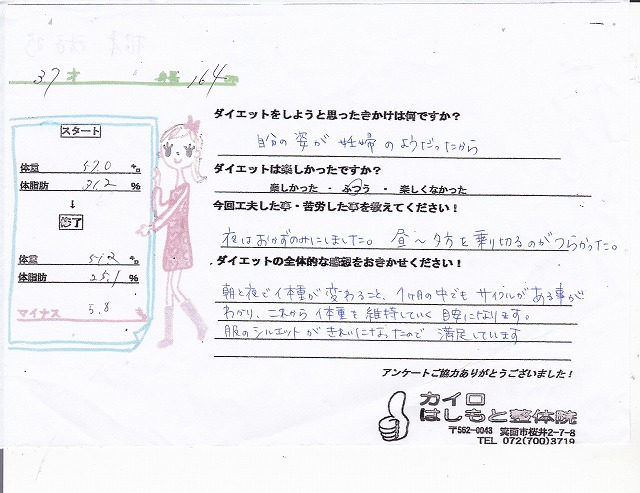 37才 身長 164cm
スタート
体重 57.0 kg
体脂肪 31.2 %
↓
終了
体重 51.2 kg
体脂肪 25.1 %
マイナス 5.8
ダイエットをしようと思ったきかけは何ですか?
自分の姿が 妊婦のようだったから
ダイエットは楽しかったですか?
楽しかった ・ ふつう ・ 楽しくなかった
今回工夫した事・苦労した事を教えてください!
夜はおかずのみにしました。昼〜夕方を乗り切るのがつらかった。
ダイエットの全体的な感想をおきかせください!
朝と夜で体重が変わること、1ヶ月の中でもサイクルがある事が
わかり、これから体重を維持していく目安になります。
服のシルエットがきれいになったので 満足しています
アンケートご協力ありがとうございました!
カイロ
はしもと整体院
〒562-0043 箕面市桜井2-7-8
TEL 072(700)3719